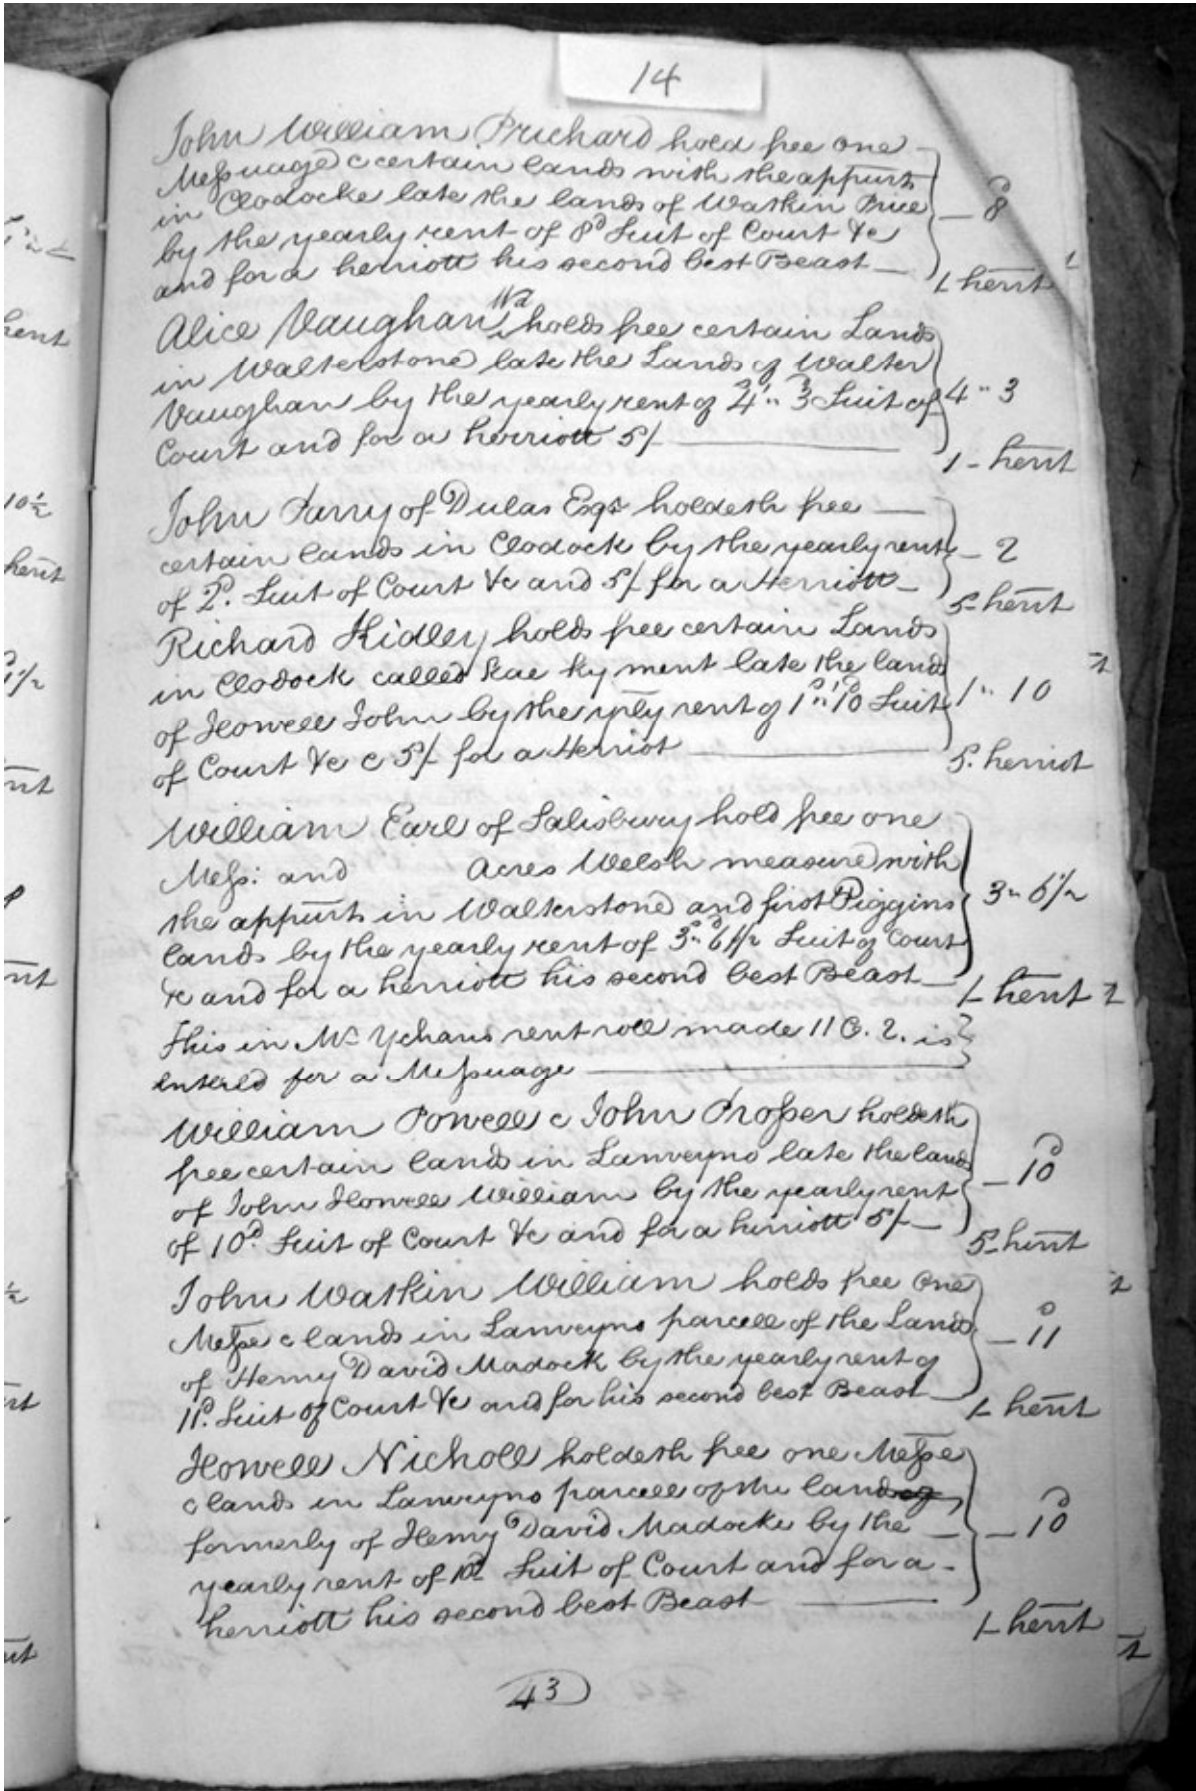 14
John William Prichard hold free one
Messuage & certain lands with the appurts
in Clodocke late the lands of Watkin Price
by the yearly rent of 8d Suit of Court &c
and for a herriott his second best Beast
— 8d
1 herrt
Alice Vaughan Wid holds free certain Lands
in Walterstone late the Lands of Walter
Vaughan by the yearly rent of 4s" 3d Suit of
Court and for a herriott 5/-
4 " 3
1 - herrt
John Parry of Dulas Esqr holdeth free
certain lands in Clodock by the yearly rent
of 2d. Suit of Court &c and 5/- for a Herriott
— 2
5- herrt
Richard Hidley holds free certain Lands
in Clodock called Kae ky ment late the lands
of Howell John by the yrly rent of 1s" 10d Suit
of Court &c & 5/- for a Herriot
1 " 10
5. herriot
William Earl of Salisbury hold free one
Mess: and Acres Welsh measure with
the appurts in Walterstone and first Piggins
lands by the yearly rent of 3s" 6d 1/2 Suit of Court
&c and for a herriott his second best Beast
3 " 6 1/2
1- herrt
This in Mr Ychans rent roll made 11 C. 2. is
entered for a Messuage
William Powell & John Prosser holdeth
free certain lands in Lanveyno late the lands
of John Howell William by the yearly rent
of 10d. Suit of Court &c and for a herriott 5/-
— 10d
5- herrt
John Watkin William holds free One
Messe & lands in Lanveyno parcell of the Lands
of Henry David Madock by the yearly rent of
11d. Suit of Court &c and for his second best Beast
— 11d
1- herrt
Howell Nicholl holdeth free one Messe
& lands in Lanveyno parcell of the lands of
formerly of Henry David Madocke by the
yearly rent of 10d Suit of Court and for a
herriott his second best Beast
— 10d
1- herrt
43